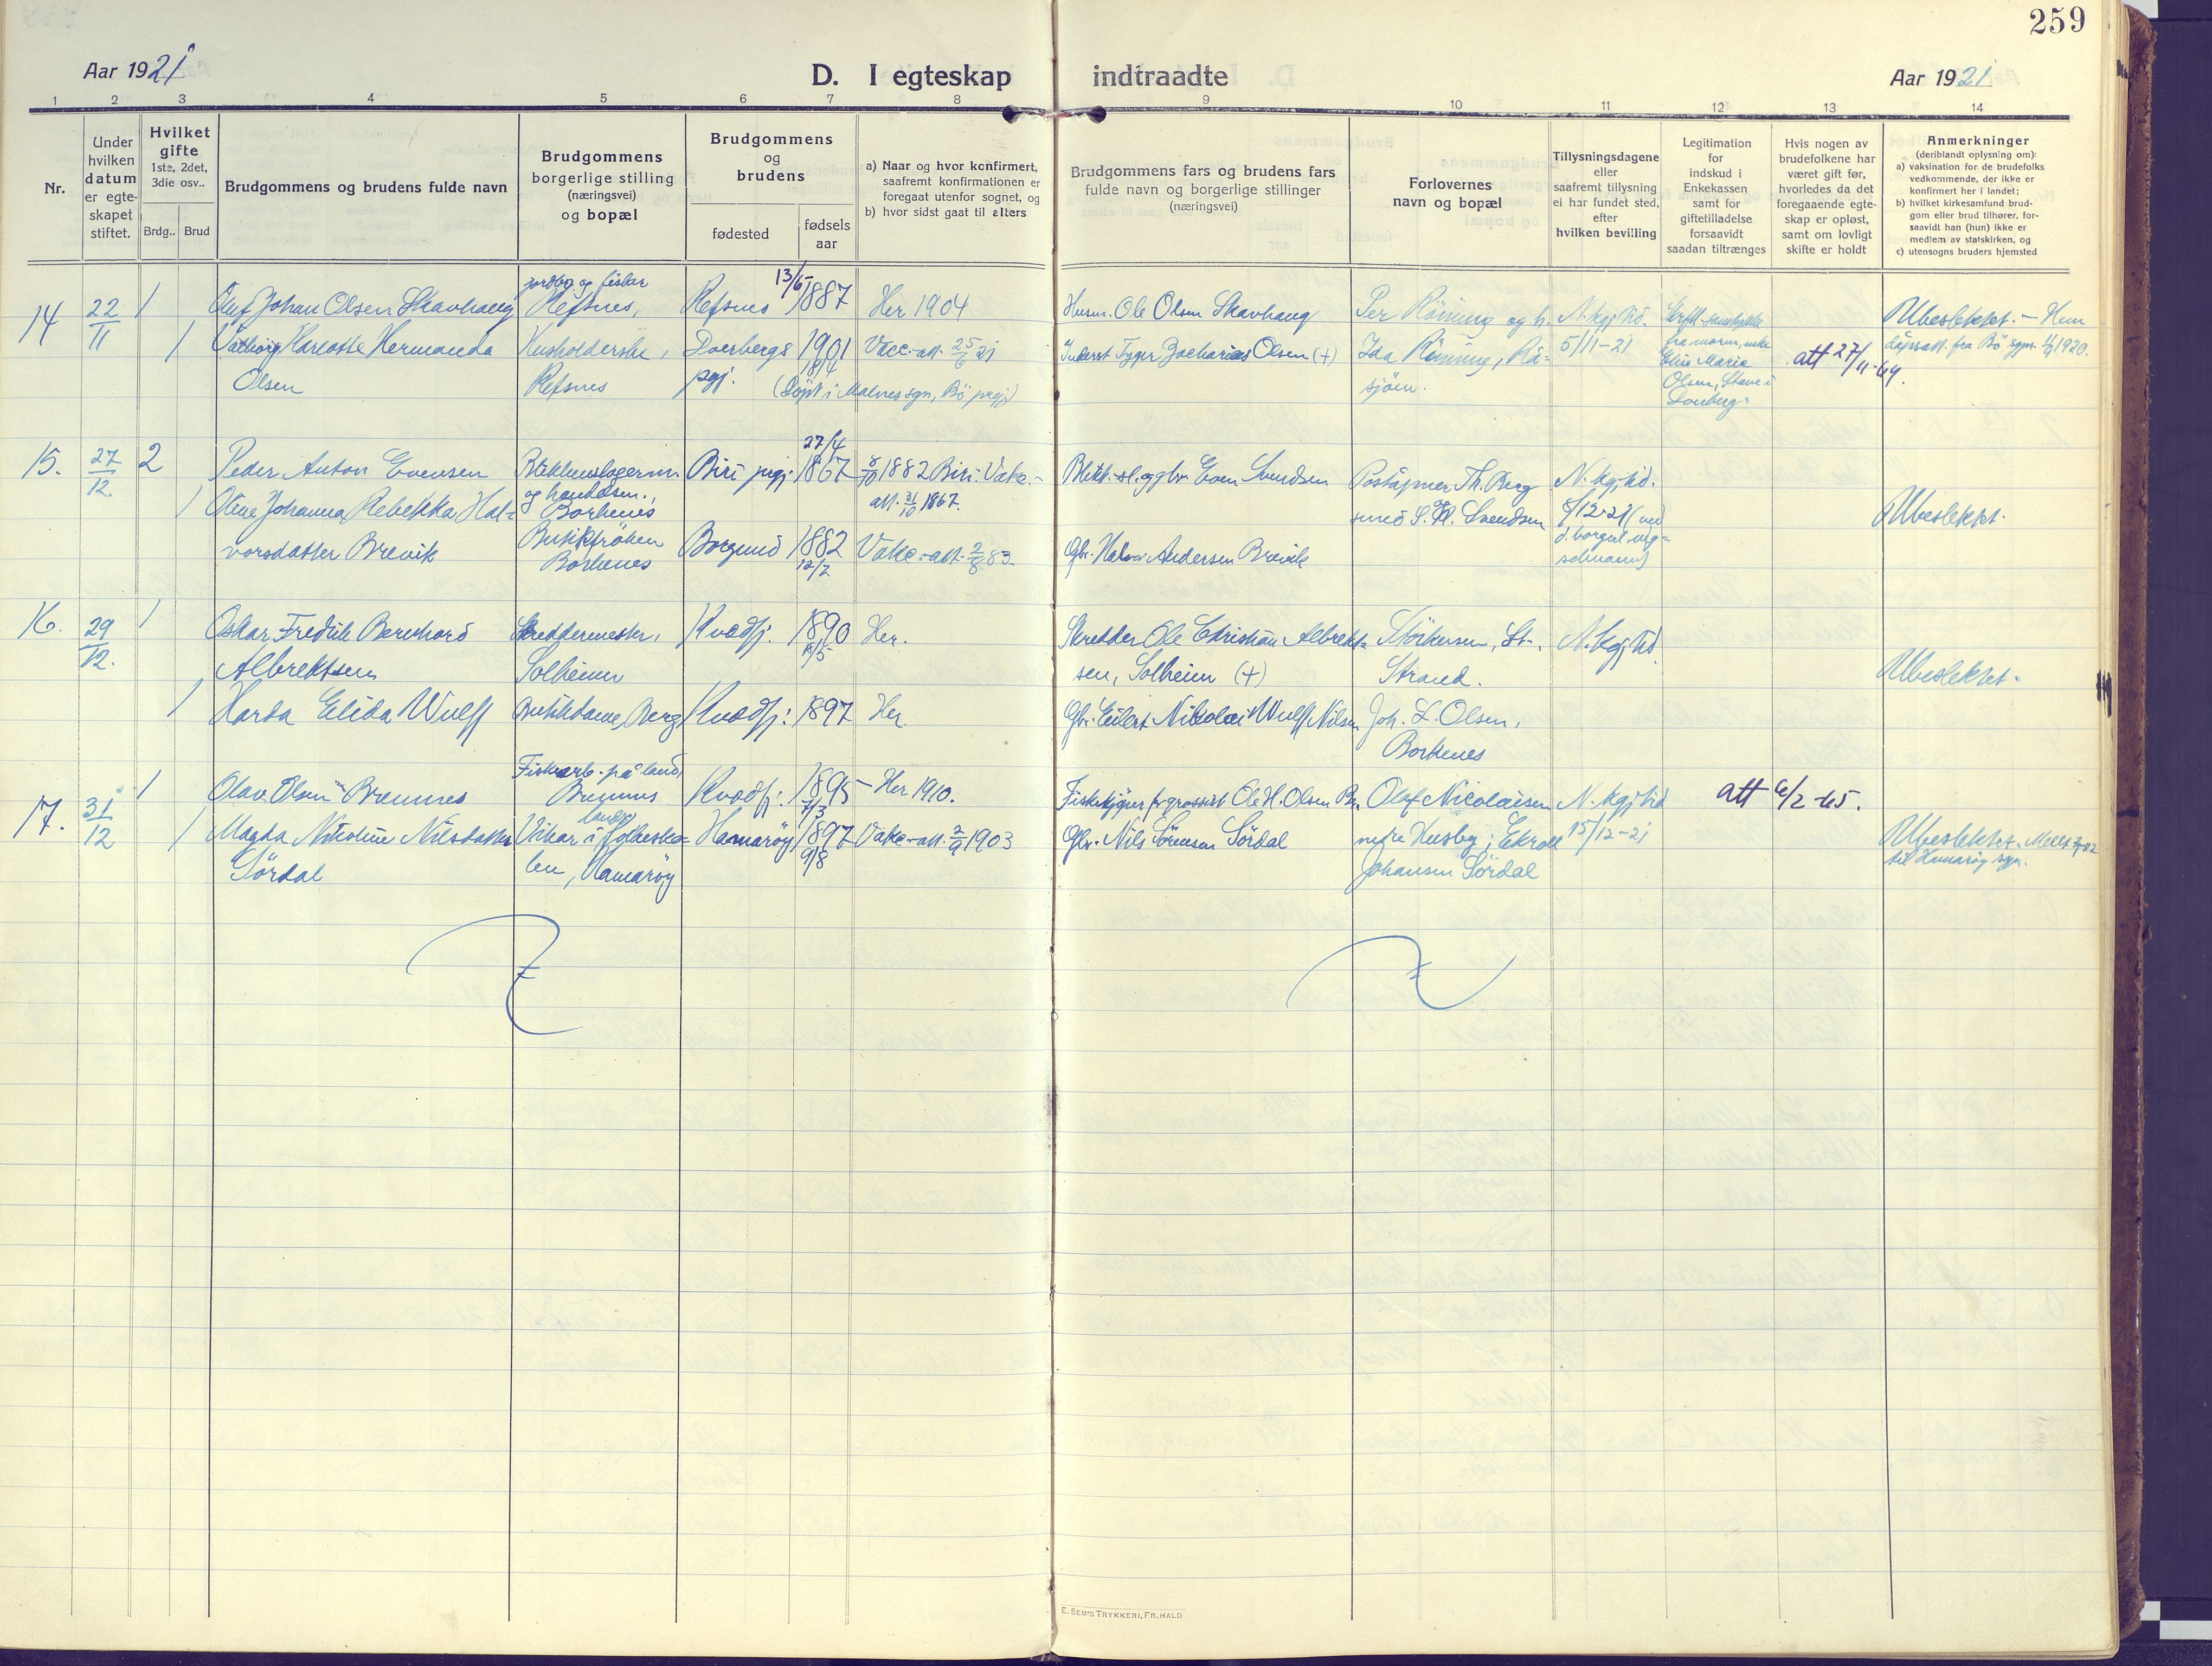 259
Aar 1921
D. I egteskap indtraadte
Aar 1921
1 2 3 4 5 6 7 8 9 10 11 12 13 14
Nr.
Under
hvilken
datum
er egte-
skapet
stiftet.
Hvilket
gifte
1ste, 2det,
3die osv..
Brdg.. Brud
Brudgommens og brudens fulde navn
Brudgommens
borgerlige stilling
(næringsvei)
og bopæl
Brudgommens
og
brudens
fødested
fødsels
aar
a) Naar og hvor konfirmert,
saafremt konfirmationen er
foregaat utenfor sognet, og
b) hvor sidst gaat til alters
Brudgommens fars og brudens fars
fulde navn og borgerlige stillinger
(næringsvei)
Forlovernes
navn og bopæl
Tillysningsdagene
eller
saafremt tillysning
ei har fundet sted,
efter
hvilken bevilling
Legitimation
for
indskud i
Enkekassen
samt for
giftetilladelse
forsaavidt
saadan tiltrænges
Hvis nogen av
brudefolkene har
været gift før,
hvorledes da det
foregaaende egte-
skap er opløst,
samt om lovligt
skifte er holdt
Anmerkninger
(deriblandt oplysning om):
a) vaksination for de brudefolks
vedkommende, der ikke er
konfirmert her i landet;
b) hvilket kirkesamfund brud-
gom eller brud tilhører, for-
saavidt han (hun) ikke er
medlem av statskirken, og
c) utensogns bruders hjemsted
14 22/11 1 Oluf Johan Olsen Skavhaug
jordbr. og fisker
Refsnes, Refsnes 13/6 1887 Her 1904
Husm. Ole Olsen Skavhaug
Per Rönning og h. N. kgj. tid.
Ubeslektet. – Hun
1 Valborg Harcotte Hermanda
Olsen
Husholderske,
Refsnes
Dverbergs
pgj.
1901
18/4
Vacc-att. 25/6 21
(Döpt i Malnes sgn, Bö prgj)
Inderst Tyger Zacharias Olsen (+)
Ida Rönning, Rå-
sjöen.
5/11-21
Skriftl. samtykke
fra moren, enke
Elise Maria
Olsen, Stave i
att 27/11-64.
dåpsatt. fra Bö sgn. 1920.
15. 27/12. 2 Peder Anton Evensen
Blikkenslagerm.
og handelsm.,
Borkenes
Biri prgj. 27/4 1867
8/10 1882 Biri. Vakc.-
att. 31/10 1867.
Blikk.sl. og gbr. Even Svendsen
Poståpner Th. Berg
smed S. K. Svendsen
N. kgj. tid.
8/12-21 (ved
d. borgerl. vig-
selmann)
1 Oline Johanna Rebekka Hal-
vorsdatter Brevik
Butikkfröken
Borkenes
Borgund 1882
12/2
Vakc-att. 2/8 83
Gbr. Halvor Andersen Brevik
Ubeslektet.
16. 29/12. 1 Oskar Fredrik Bernhard
Albrektsen
Skreddermester,
Solheim
Kvædfj. 1890
Her.
Skredder Ole Christian Albrekt-
sen, Solheim (+)
Störkersen, St-.
Strand.
N. kgj. tid.
Ubeslektet.
1 Harda Elida Wulff
Butikdame, Berg
Kvædfj: 1897 Her.
Gbr. Eilert Nikolai Wulff Nilsen
Joh. L. Olsen,
Borkenes
17. 31/12 1 Olav Olsen Bremnes
Fiskearb. på land,
Bremnes
Kvædfj: 1895
7/3
– Her 1910.
Fiskekjöper fr. grossist Ole H. Olsen Br.
Olaf Nicolaisen
N. kgj. tid
att 6/2-65.
1 Magda Nicoline Nilsdatter
Sördal
Vikar i landsfolkesko-
len, Hamaröy
Hamaröy 1897
9/8
Vakc-att. 2/9 1903
Gbr. Nils Sörensen Sördal
nedre Husby; Ekroll
Johansen Sördal
15/12-21
Ubeslektet. Meldt
til Hamaröy sgn.
E. SEM'S TRYKKERI, FR.HALD